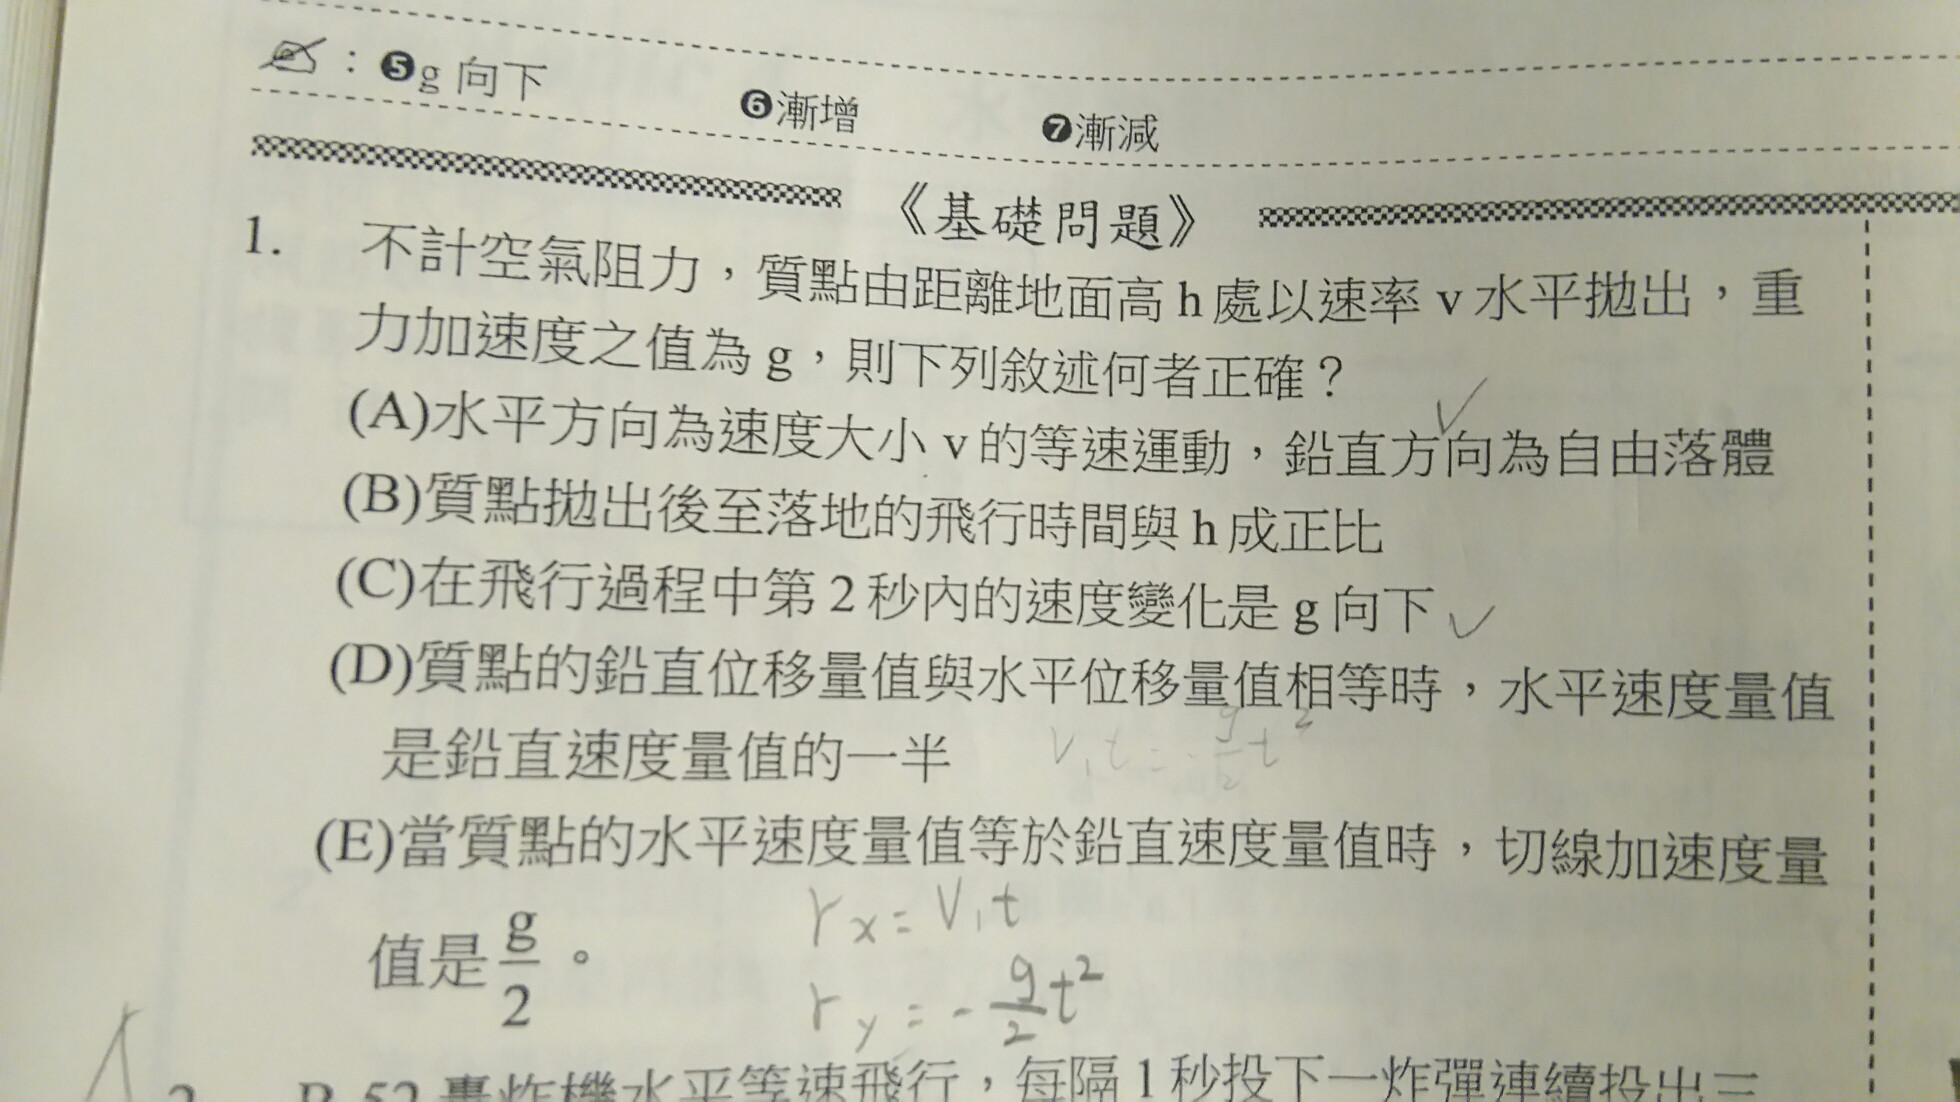 ：❺g 向下 ❻漸增 ❼漸減
《基礎問題》
1. 不計空氣阻力，質點由距離地面高 h 處以速率 v 水平拋出，重
力加速度之值為 g，則下列敘述何者正確？
(A)水平方向為速度大小 v 的等速運動，鉛直方向為自由落體
(B)質點拋出後至落地的飛行時間與 h 成正比
(C)在飛行過程中第 2 秒內的速度變化是 g 向下
(D)質點的鉛直位移量值與水平位移量值相等時，水平速度量值
是鉛直速度量值的一半 V₁t = -g/2 t²
(E)當質點的水平速度量值等於鉛直速度量值時，切線加速度量
值是 g/2。
r x = V₁t
r y = - g/2 t²
2. B-52 轟炸機水平等速飛行，每隔 1 秒投下一炸彈連續投出三